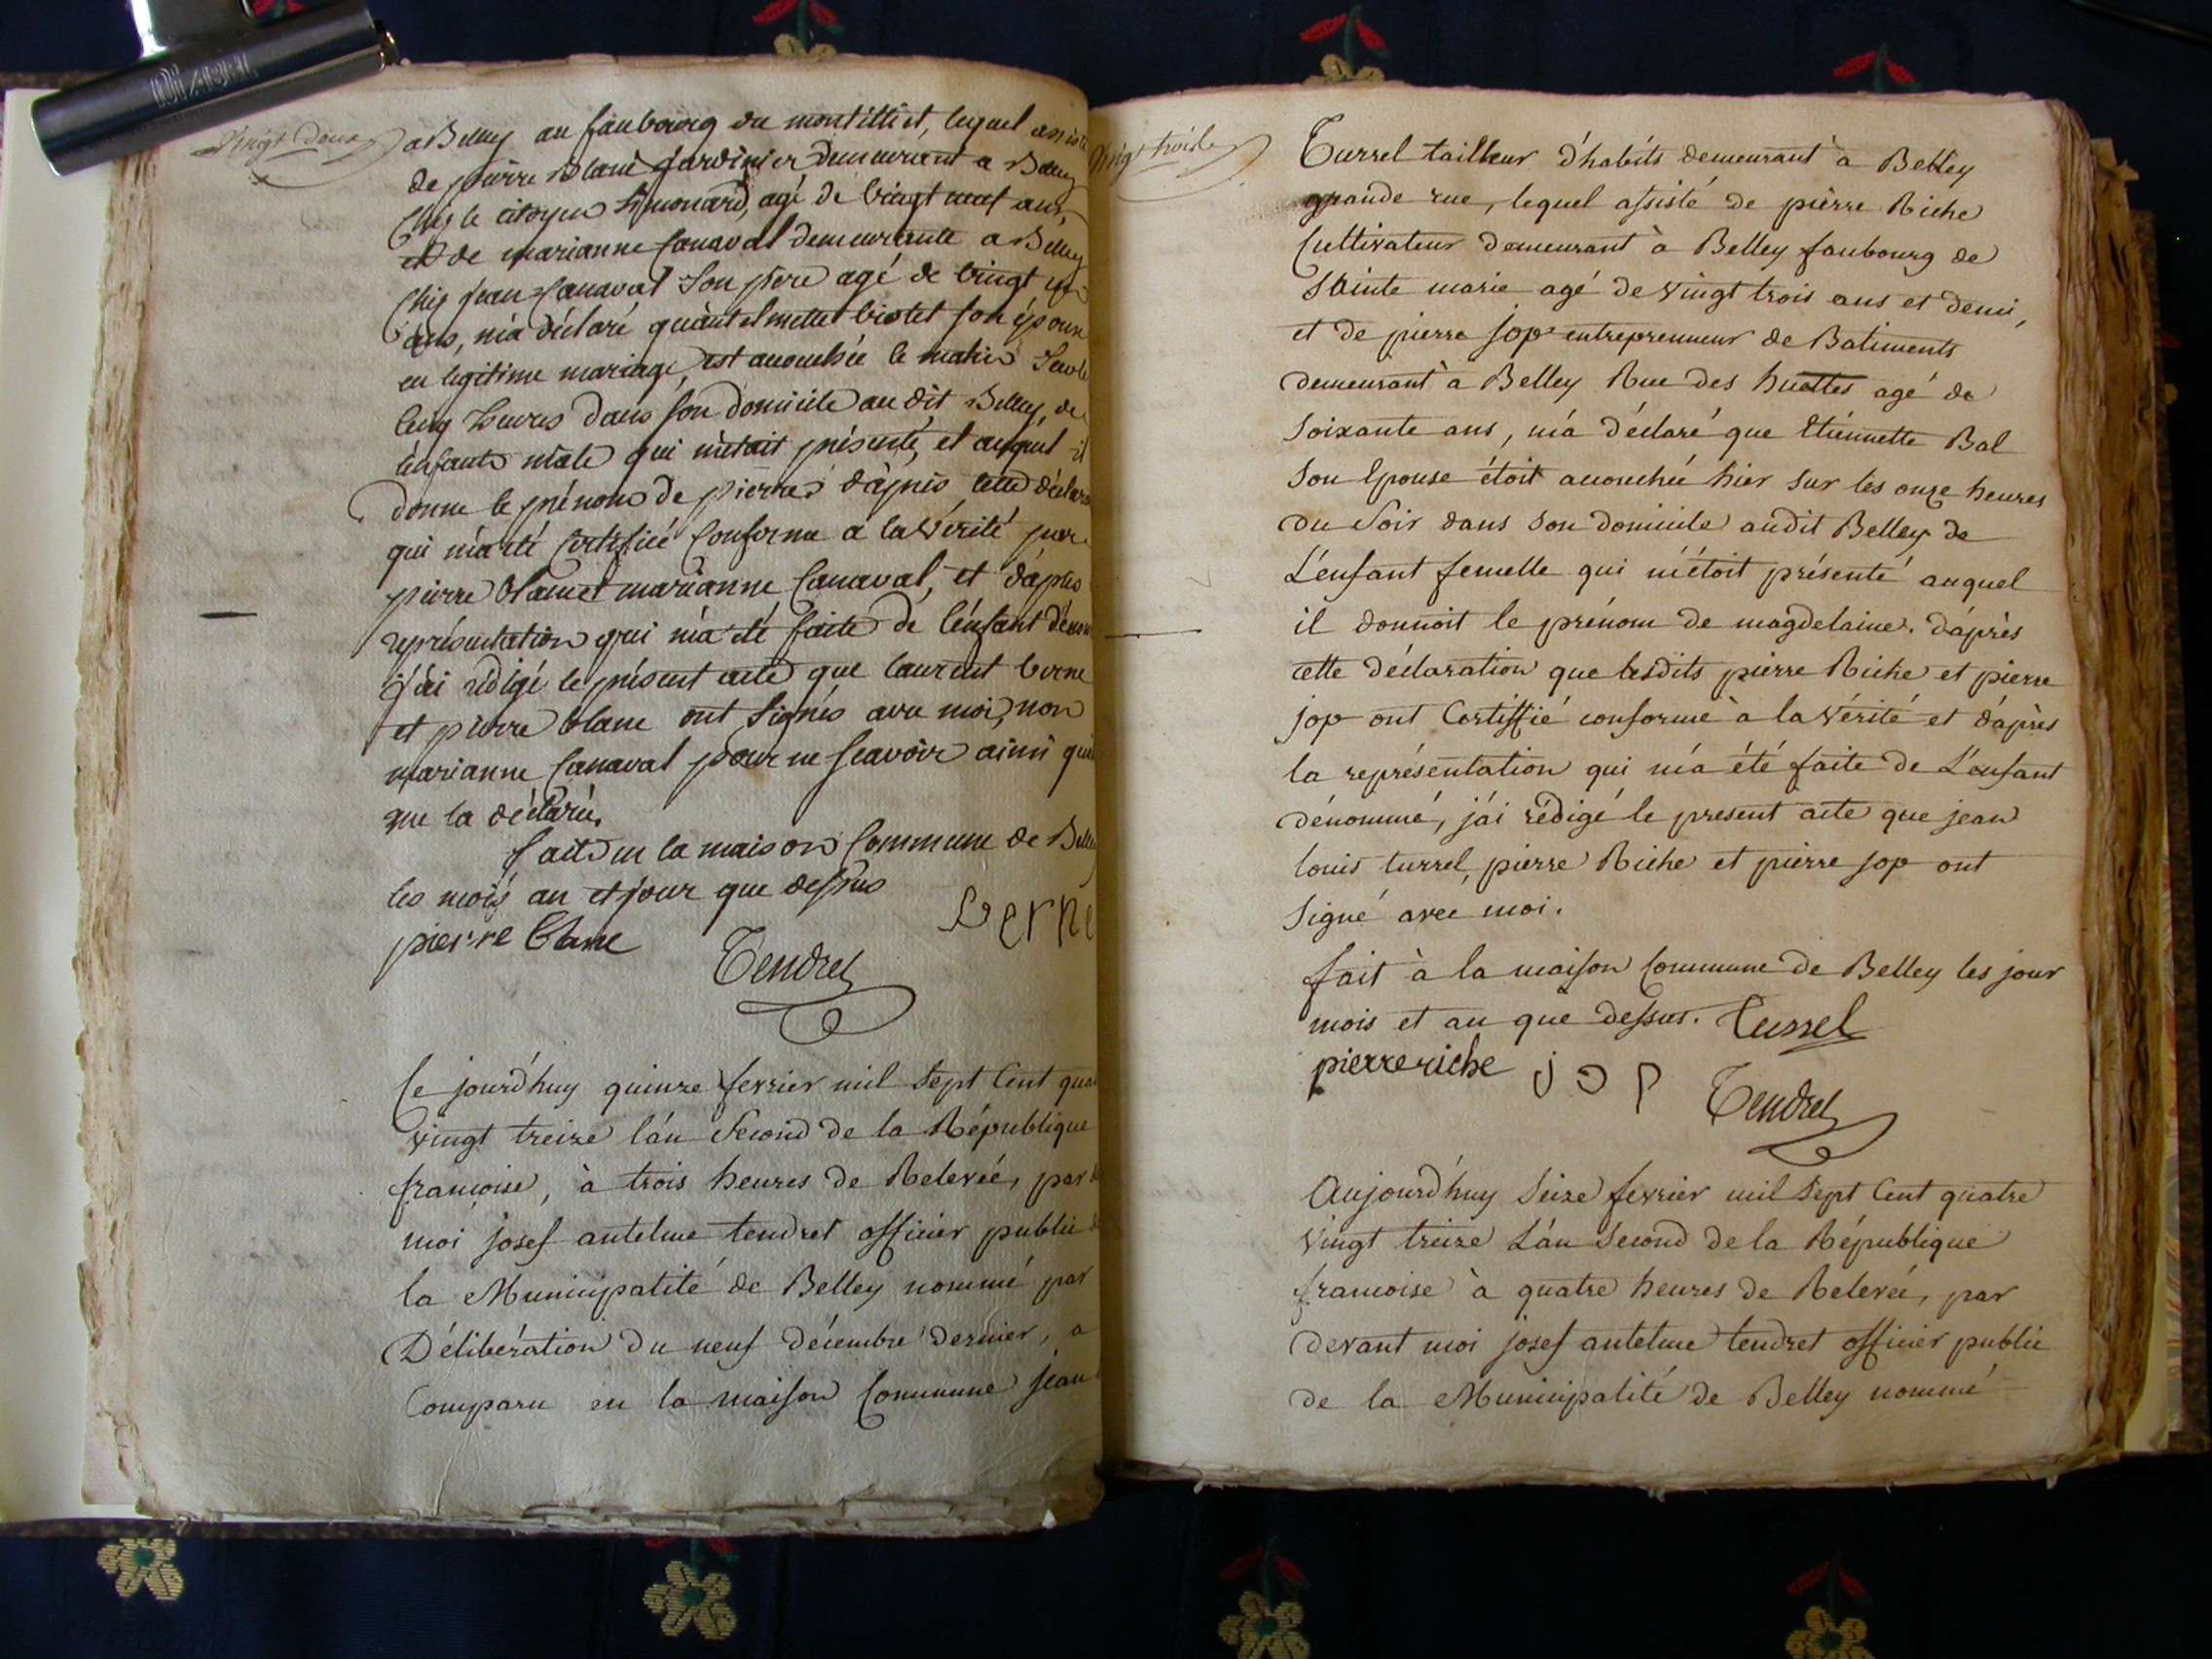 DIABEL
Vingt Deux
a Belley au faubourg du montilliet, lequel assisté
de pierre Blanc Jardinier, demeurant a Belley
Chés le citoyen Simonard, agé de vingt neuf ans,
et de marianne Canaval demeurante a Belley
Chés Jean Canaval Son père agé de vingt
ans, m'a déclaré qu'antelmette biolet son épouse
en legitime mariage, est accouchée le matin Sur les
Cinq heures dans son domicile au dit Belley, de
l'enfant mâle qui m'etait présenté, et auquel il
donne le prénom de pierre, d'après cette déclara
qui m'a été certifiée Conforme a la Vérité par
pierre Blanc et marianne Canaval, et d'après
représentation qui m'a été faite de l'enfant dénom
j'ai rédigé le présent acte que laurent verne
et pierre blanc ont signés avec moi, non
marianne Canaval pour ne scavoir ainsi qu
que la déclaré,
fait en la maison Commune de Belley
les mois an et jour que dessus
pierre blanc
verne
Tendret
Ce jourd'huy quinze fevrier mil sept Cent qua
vingt treize l'an Second de la République
francoise, à trois heures de Relevée, par d
moi josef antelme tendret officier public d
la Municipalité de Belley nommé par
Délibération du neuf décembre dernier, a
Comparu en la maison Commune jean
Vingt trois
Turrel tailleur d'habits demeurant à Belley
grande rue, lequel assisté de pierre Riche
Cultivateur demeurant à Belley faubourg de
Sainte marie agé de vingt trois ans et demi,
et de pierre jop entreprenneur de Batiments
demeurant à Belley Rue des huottes agé de
Soixante ans, m'a déclaré que Etiennette Bal
Son Epouse étoit accouchée hier sur les onze heures
du Soir dans Son domicile audit Belley de
L'enfant femelle qui m'étoit présenté auquel
il donnoit le prénom de magdelaine. d'après
cette déclaration que lesdits pierre Riche et pierre
jop ont Certiffié conforme à la vérité et d'après
la représentation qui m'a été faite de L'enfant
dénommé, j'ai rédigé le present acte que jean
louis turrel, pierre Riche et pierre jop ont
Signé avec moi.
fait à la maison Commune de Belley les jour
mois et an que dessus. Turrel
pierre riche jop
Tendret
Aujourd'huy Seize fevrier mil sept Cent quatre
vingt treize L'an Second de la République
francoise à quatre heures de Relevée, par
devant moi josef antelme tendret officier public
de la Municipalité de Belley nommé